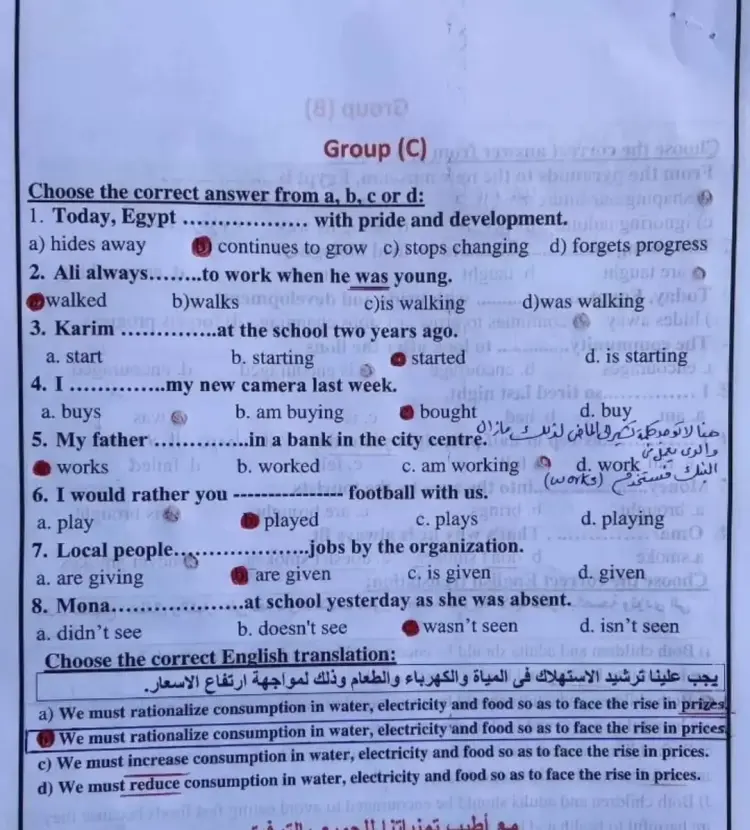 Group (C)
Choose the correct answer from a, b, c or d:
1. Today, Egypt .................. with pride and development.
a) hides away b) continues to grow c) stops changing d) forgets progress
2. Ali always........to work when he was young.
a)walked b)walks c)is walking d)was walking
3. Karim ..............at the school two years ago.
a. start b. starting c started d. is starting
4. I ..............my new camera last week.
a. buys b. am buying c bought d. buy
5. My father ..............in a bank in the city centre.
a works b. worked c. am working d. work
(works)
6. I would rather you ---------------- football with us.
a. play b played c. plays d. playing
7. Local people....................jobs by the organization.
a. are giving b are given c. is given d. given
8. Mona...................at school yesterday as she was absent.
a. didn't see b. doesn't see wasn't seen d. isn't seen
Choose the correct English translation:
يجب علينا ترشيد الاستهلاك فى المياة والكهرباء والطعام وذلك لمواجهة ارتفاع الاسعار.
a) We must rationalize consumption in water, electricity and food so as to face the rise in prizes.
b) We must rationalize consumption in water, electricity and food so as to face the rise in prices.
c) We must increase consumption in water, electricity and food so as to face the rise in prices.
d) We must reduce consumption in water, electricity and food so as to face the rise in prices.
مع أطيب تمنياتنا للجميع بالتوفيق